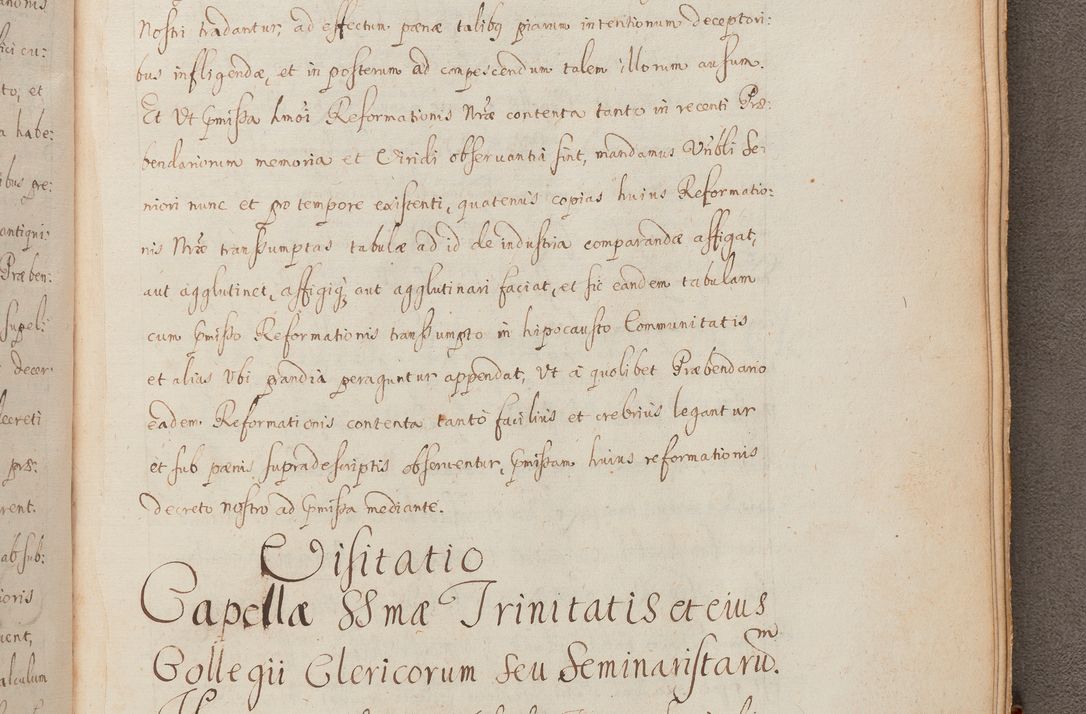 Nostri tradantur, ad effectum pænæ talibq piarum intentionum deceptori:
bus infligendæ, et in posterum ad compescendum talem illorum ausum.
Et Ut pmissa hmoi Reformationis Nræ contenta tanto in recenti Præ:
bendariorum memoria et Viridi observantia sint, mandamus Vribli Se:
niori nunc et pro tempore existenti, quatenus copias huius Reformatio:
nis Nræ transsumptas tabulæ ad id de industria comparandæ affigat,
aut agglutinet, affigiq; aut agglutinari faciat, et sic eandem tabulam
cum pmisso Reformationis transsumpto in hipocausto Communitatis
et alias Ubi prandia peraguntur appendat, Ut à quolibet Præbendario
eadem Reformationis contenta tanto facilius et crebrius legantur
et sub pænis supradescriptis observentur, pmissam huius reformationis
decreto nostro ad pmissa mediante.
Visitatio
Capellæ SSmæ Trinitatis et eius
Collegii Clericorum seu Seminaristarum.
cu:
to, et
a habe:
ibus gre:
antiqui:
Præben:
supeli:
decer
decreti
præ:
rent.
ab sub:
ioris
uent,
alculum